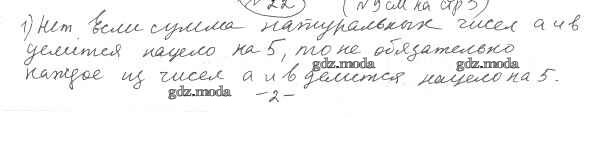 №22 (№9 см на стр 3)
1) Нет. Если сумма натуральных чисел а и в
делится нацело на 5, то не обязательно
gdz.moda gdz.moda
каждое из чисел а и в делится нацело на 5.
gdz.moda gdz.moda
-2-